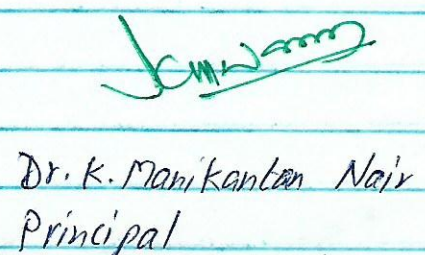 Dr. K. Manikantan Nair
Principal